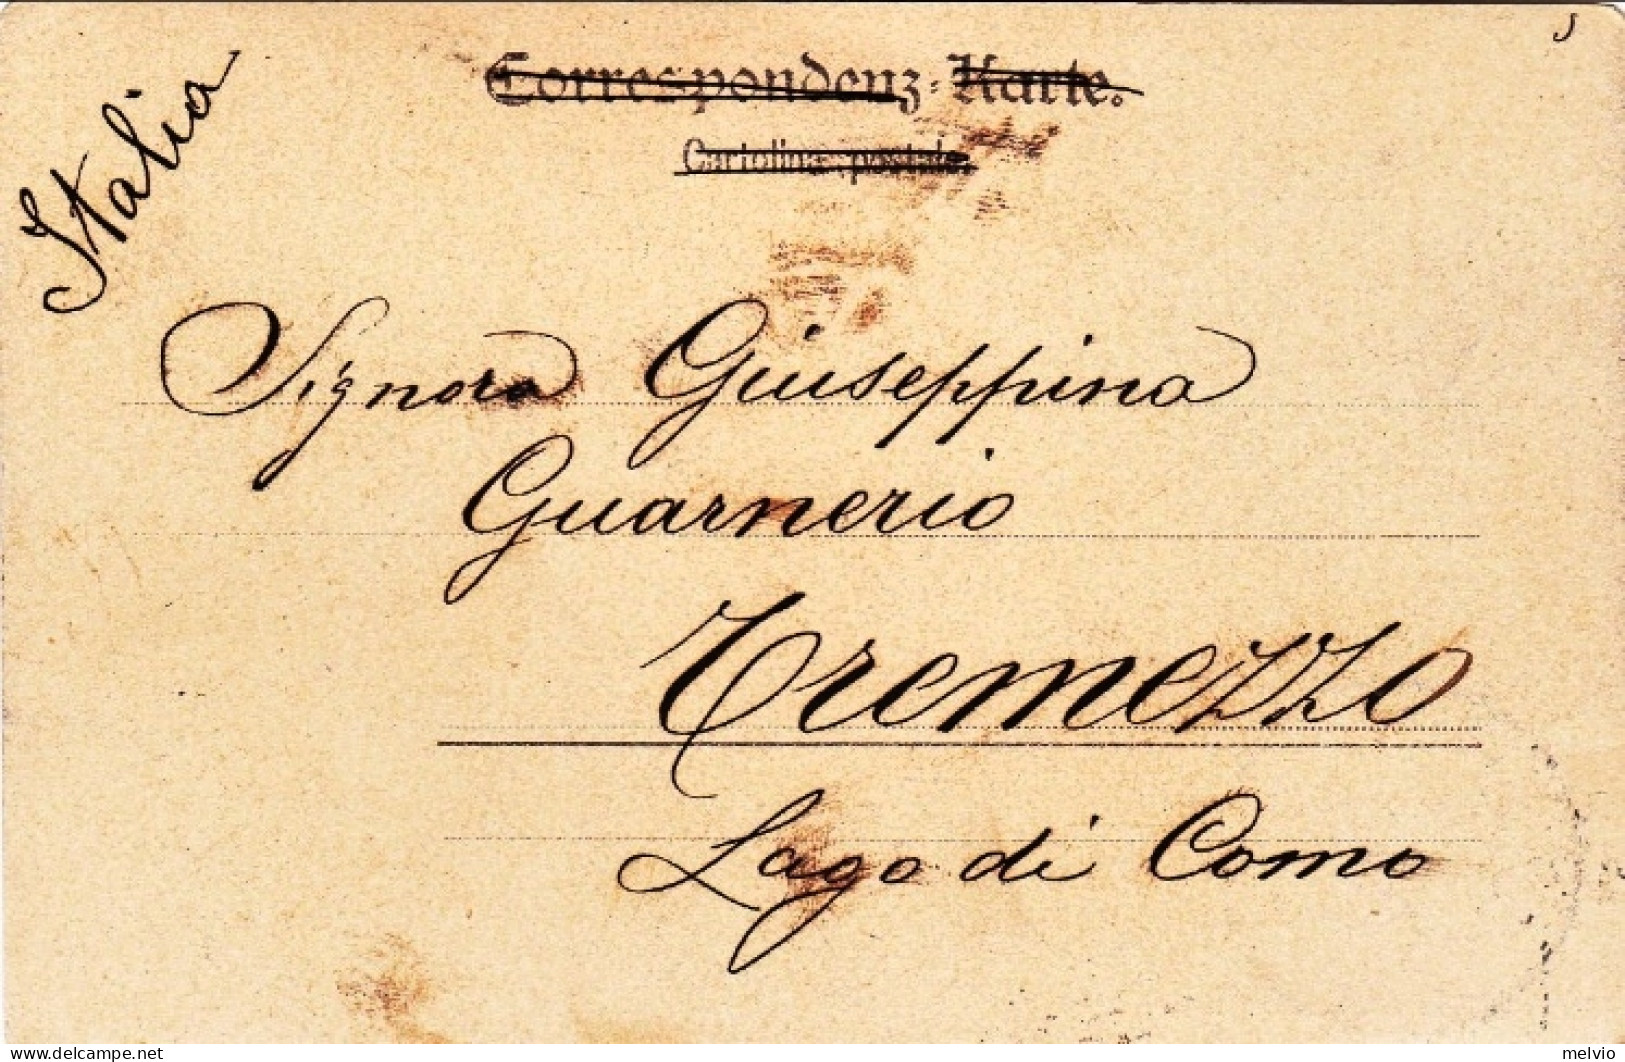 Correspondenz-Karte.
Cartolina postale.
Italia
Signora Giuseppina
Guarnerio
Tremezzo
Lago di Como
melvio